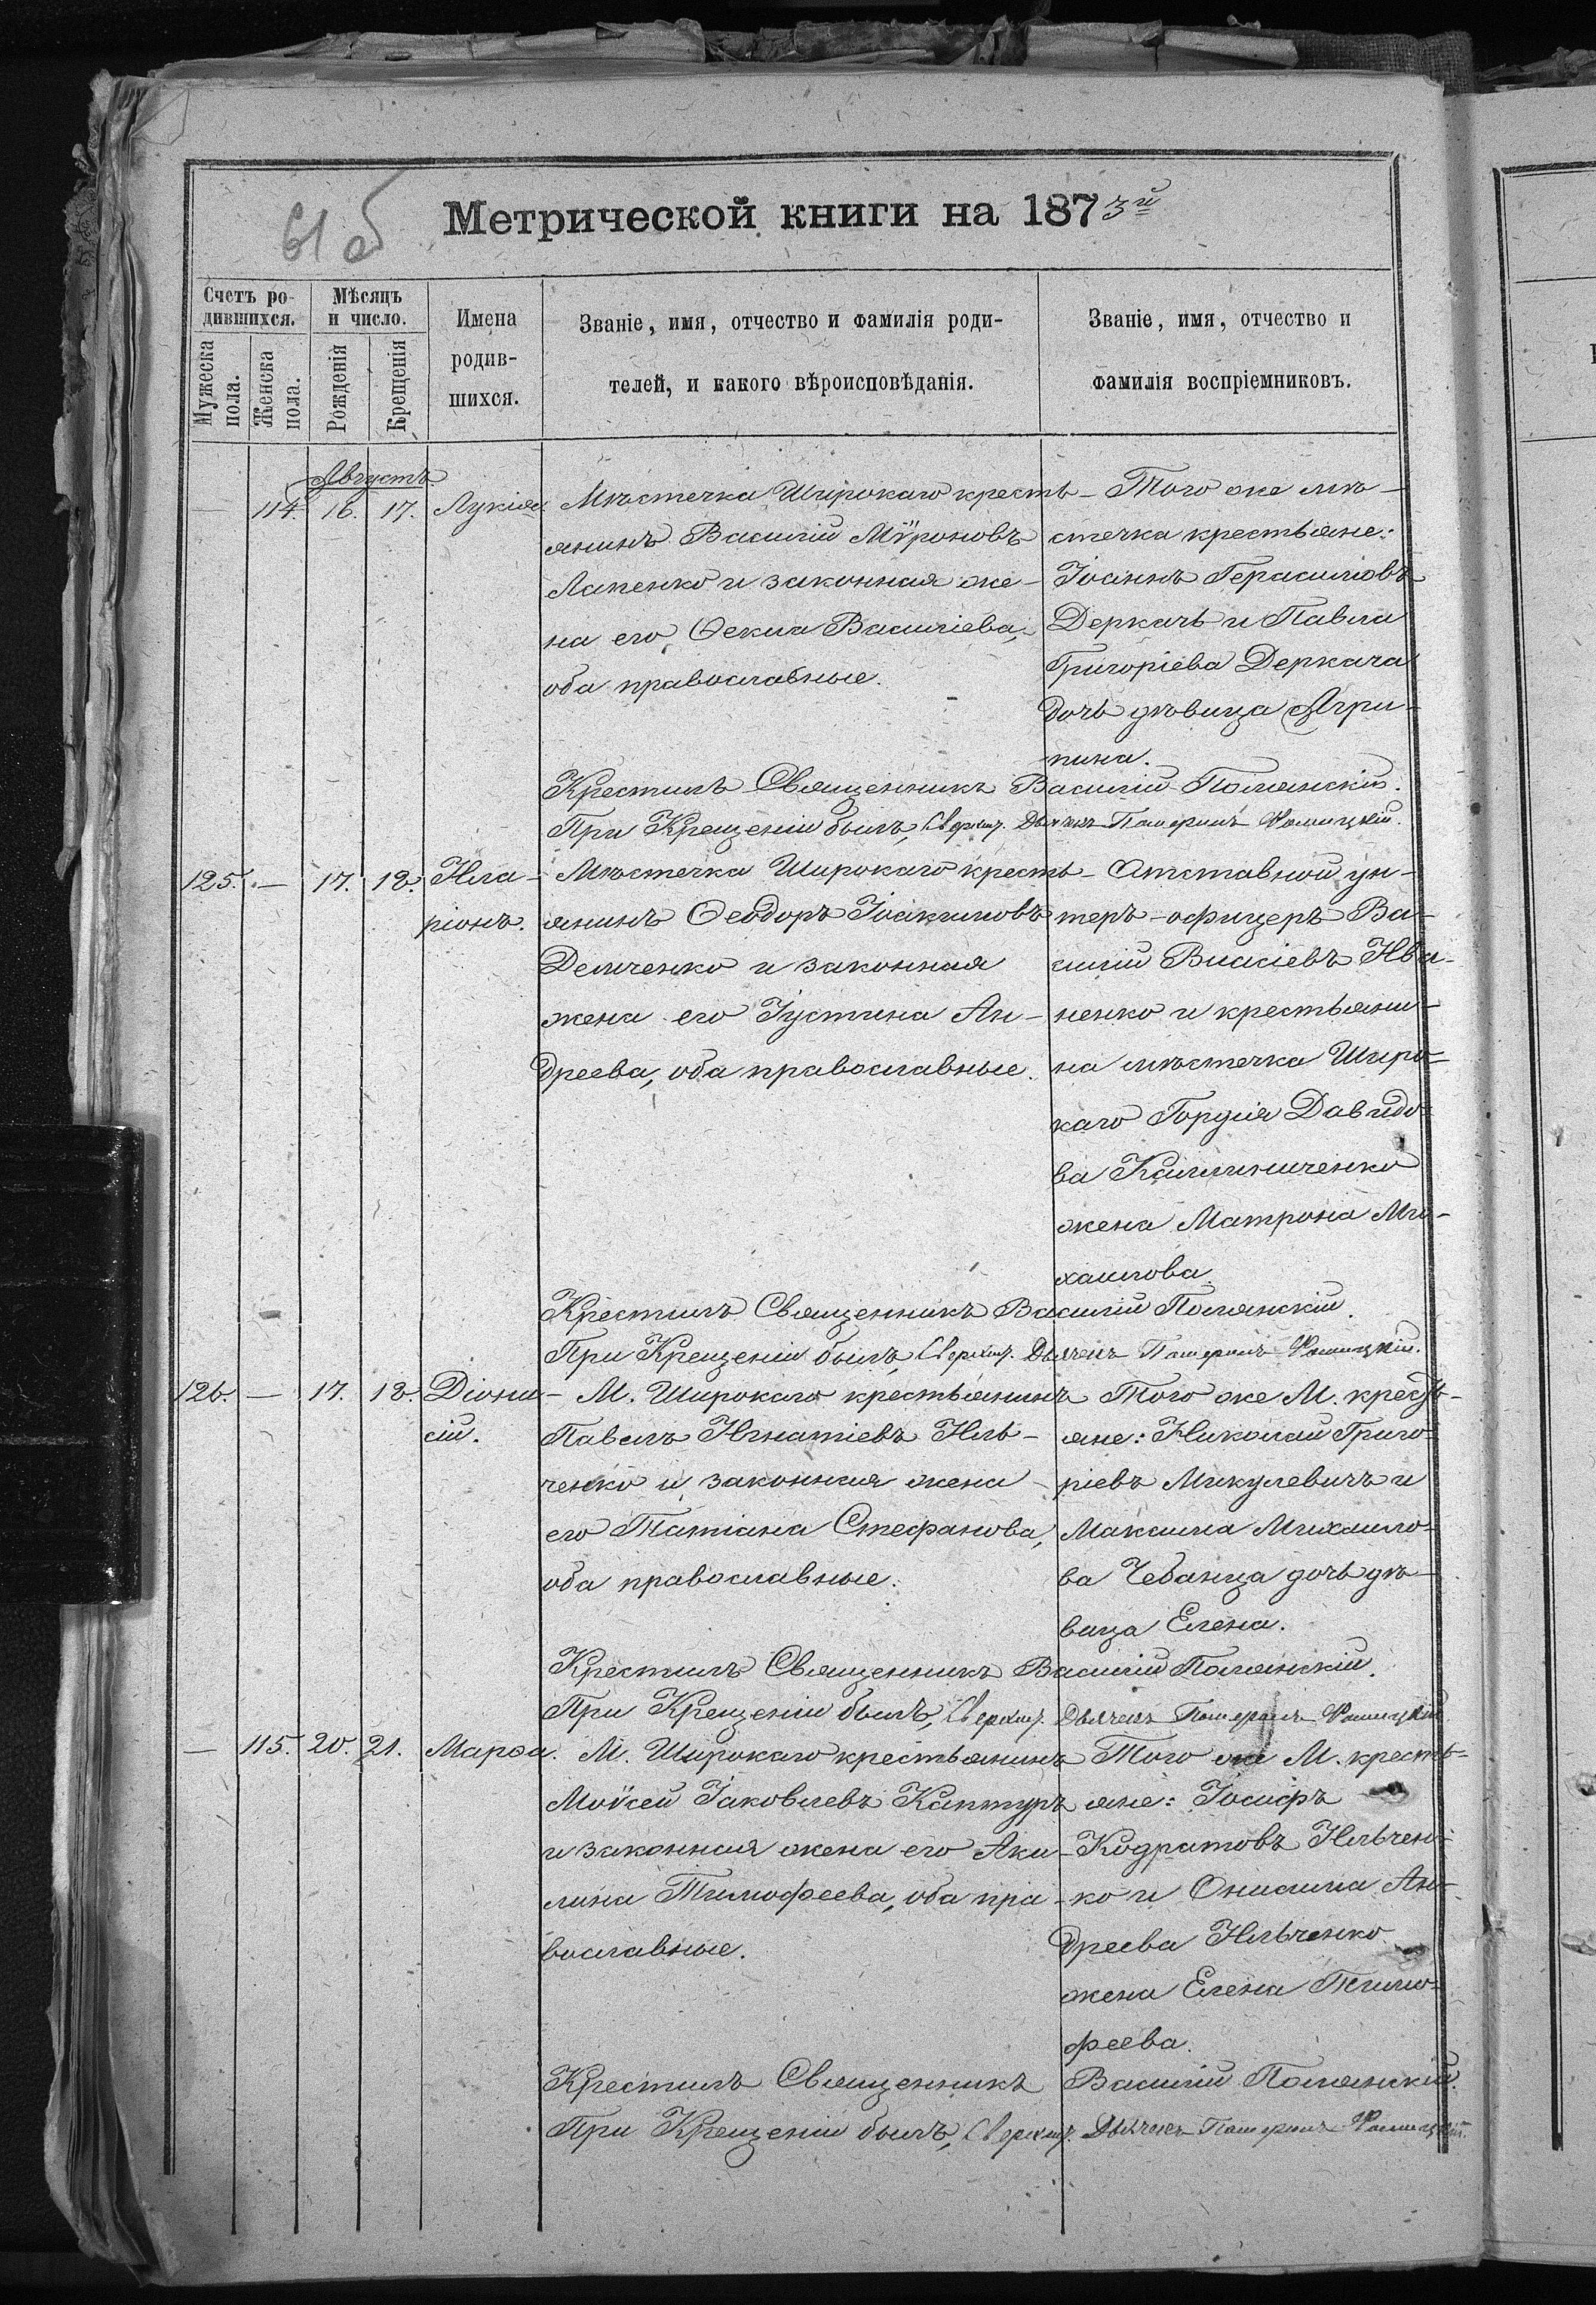 61 об
Метрической книги на 1873й
Счетъ ро-
дившихся.
Мужеска
пола.
Женска
пола.
Мѣсяцъ
и число.
Рожденія
Крещенія
Имена
родив-
шихся.
Званіе, имя, отчество и фамилія роди-
телей, и какого вѣроисповѣданія.
Званіе, имя, отчество и
фамилія воспріемниковъ.
Августъ
— 114. 16. 17. Лукія
Мѣстечка Широкаго кресть-
янинъ Василій Мѵроновъ
Лапенко и законная же-
на его Ѳекла Василіева,
оба православные.
Того же мѣ-
стечка крестьяне:
Іоаннъ Герасимовъ
Деркачъ и Павла
Григоріева Деркача
дочь дѣвица Агри-
пина.
Крестилъ Священникъ Василій Полянскій.
При Крещеніи былъ, Дьячекъ
125. — 17. 18. Ила-
ріонъ.
Мѣстечка Широкаго кресть-
янинъ Ѳеодоръ Іоакимовъ
Демченко и законная
жена его Іустина Ан-
дреева, оба православные.
Отставной ун-
теръ-офицеръ Ва-
силій Власіевъ Ива-
ненко и крестьяни-
на мѣстечка Широ-
каго Гордія Давидо-
ва Калиниченко
жена Матрона Ми-
хаилова.
Крестилъ Священникъ Василій Полянскій.
При Крещеніи былъ, Дьячекъ
126. — 17. 18. Діони-
сій.
М. Широкаго крестьянинъ
Павелъ Игнатіевъ Иль-
ченко и законная жена
его Татіана Стефанова,
оба православные.
Того же М. кресть-
яне: Николай Григо-
ріевъ Микулевичъ и
Максима Михаило-
ва Чебанца дочь дѣ-
вица Елена.
Крестилъ Священникъ Василій Полянскій.
При Крещеніи былъ, Дьячекъ
— 115. 20. 21. Марѳа.
М. Широкаго крестьянинъ
Моѵсей Іаковлевъ Каптуръ
и законная жена его Аки-
лина Тимофеева, оба пра-
вославные.
Того же М. кресть-
яне: Іосифъ
Кодратовъ Ильчен-
ко и Онисима Ан-
дреева Ильченко
жена Елена Тимо-
феева.
Крестилъ Священникъ Василій Полянскій.
При Крещеніи былъ, Дьячекъ